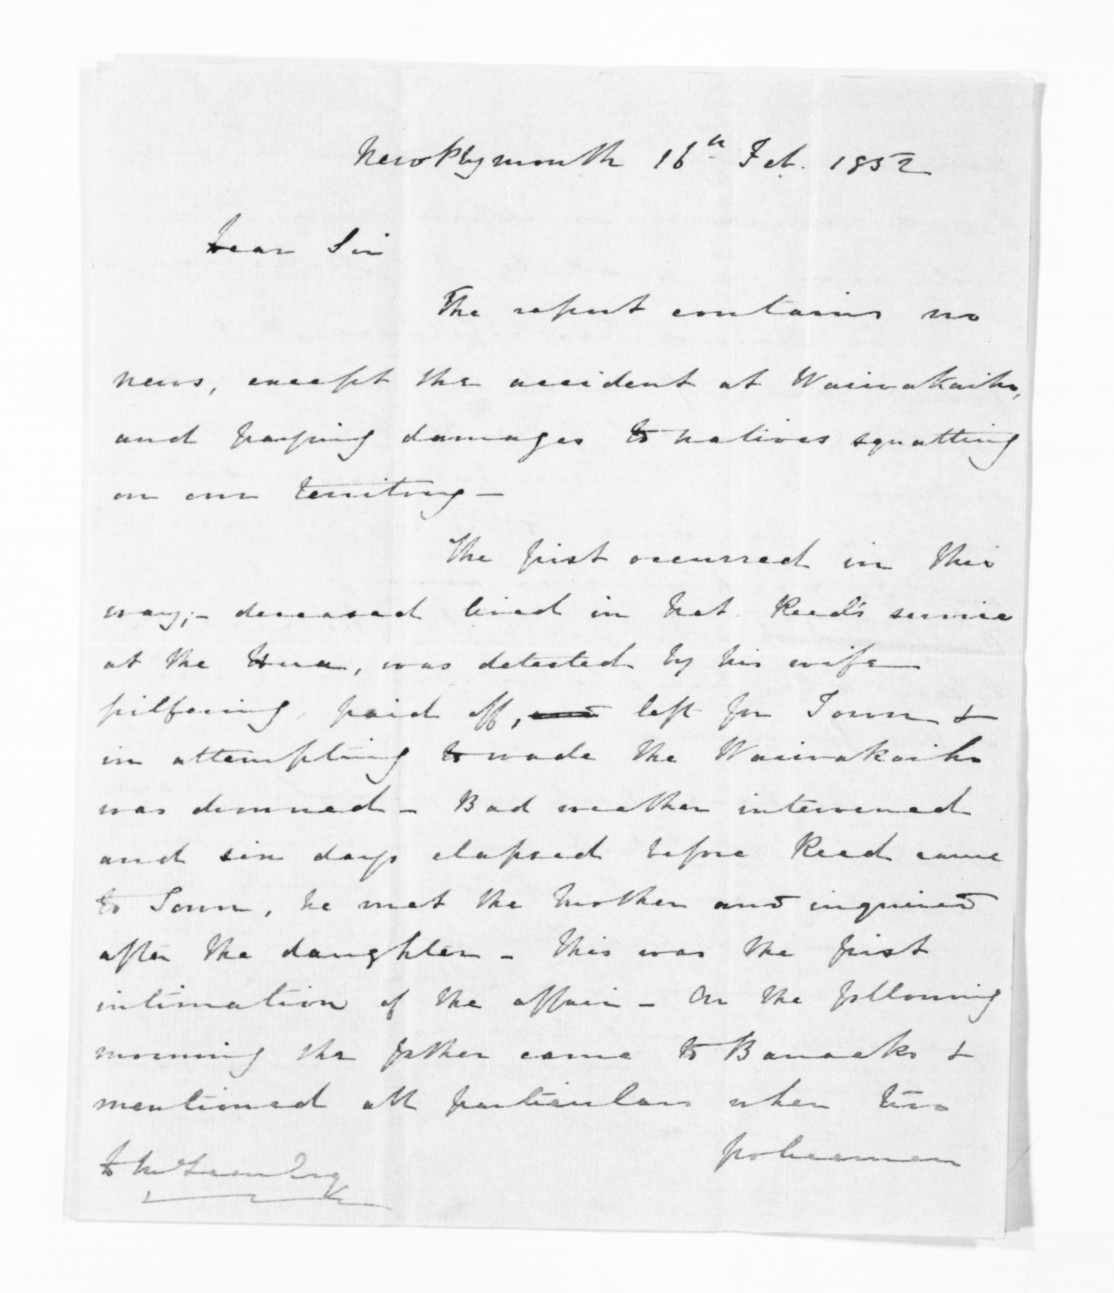 New Plymouth 16th Feb. 1852
Dear Sir
The report contains no
news, except the accident at Waiwakaiho,
and paying damages to natives squatting
on our territory –
The first occurred in this
way; – deceased lived in Nat. Reed's service
at the Hua, was detected by his wife
pilfering, paid off, left for Town &
in attempting to wade the Waiwakaiho
was drowned – Bad weather intervened
and six days elapsed before Reed came
to Town, he met the Mother and inquired
after the daughter – This was the first
intimation of the affair – On the following
morning the father came to Barracks &
mentioned all particulars when two
policemen
McLean Esq